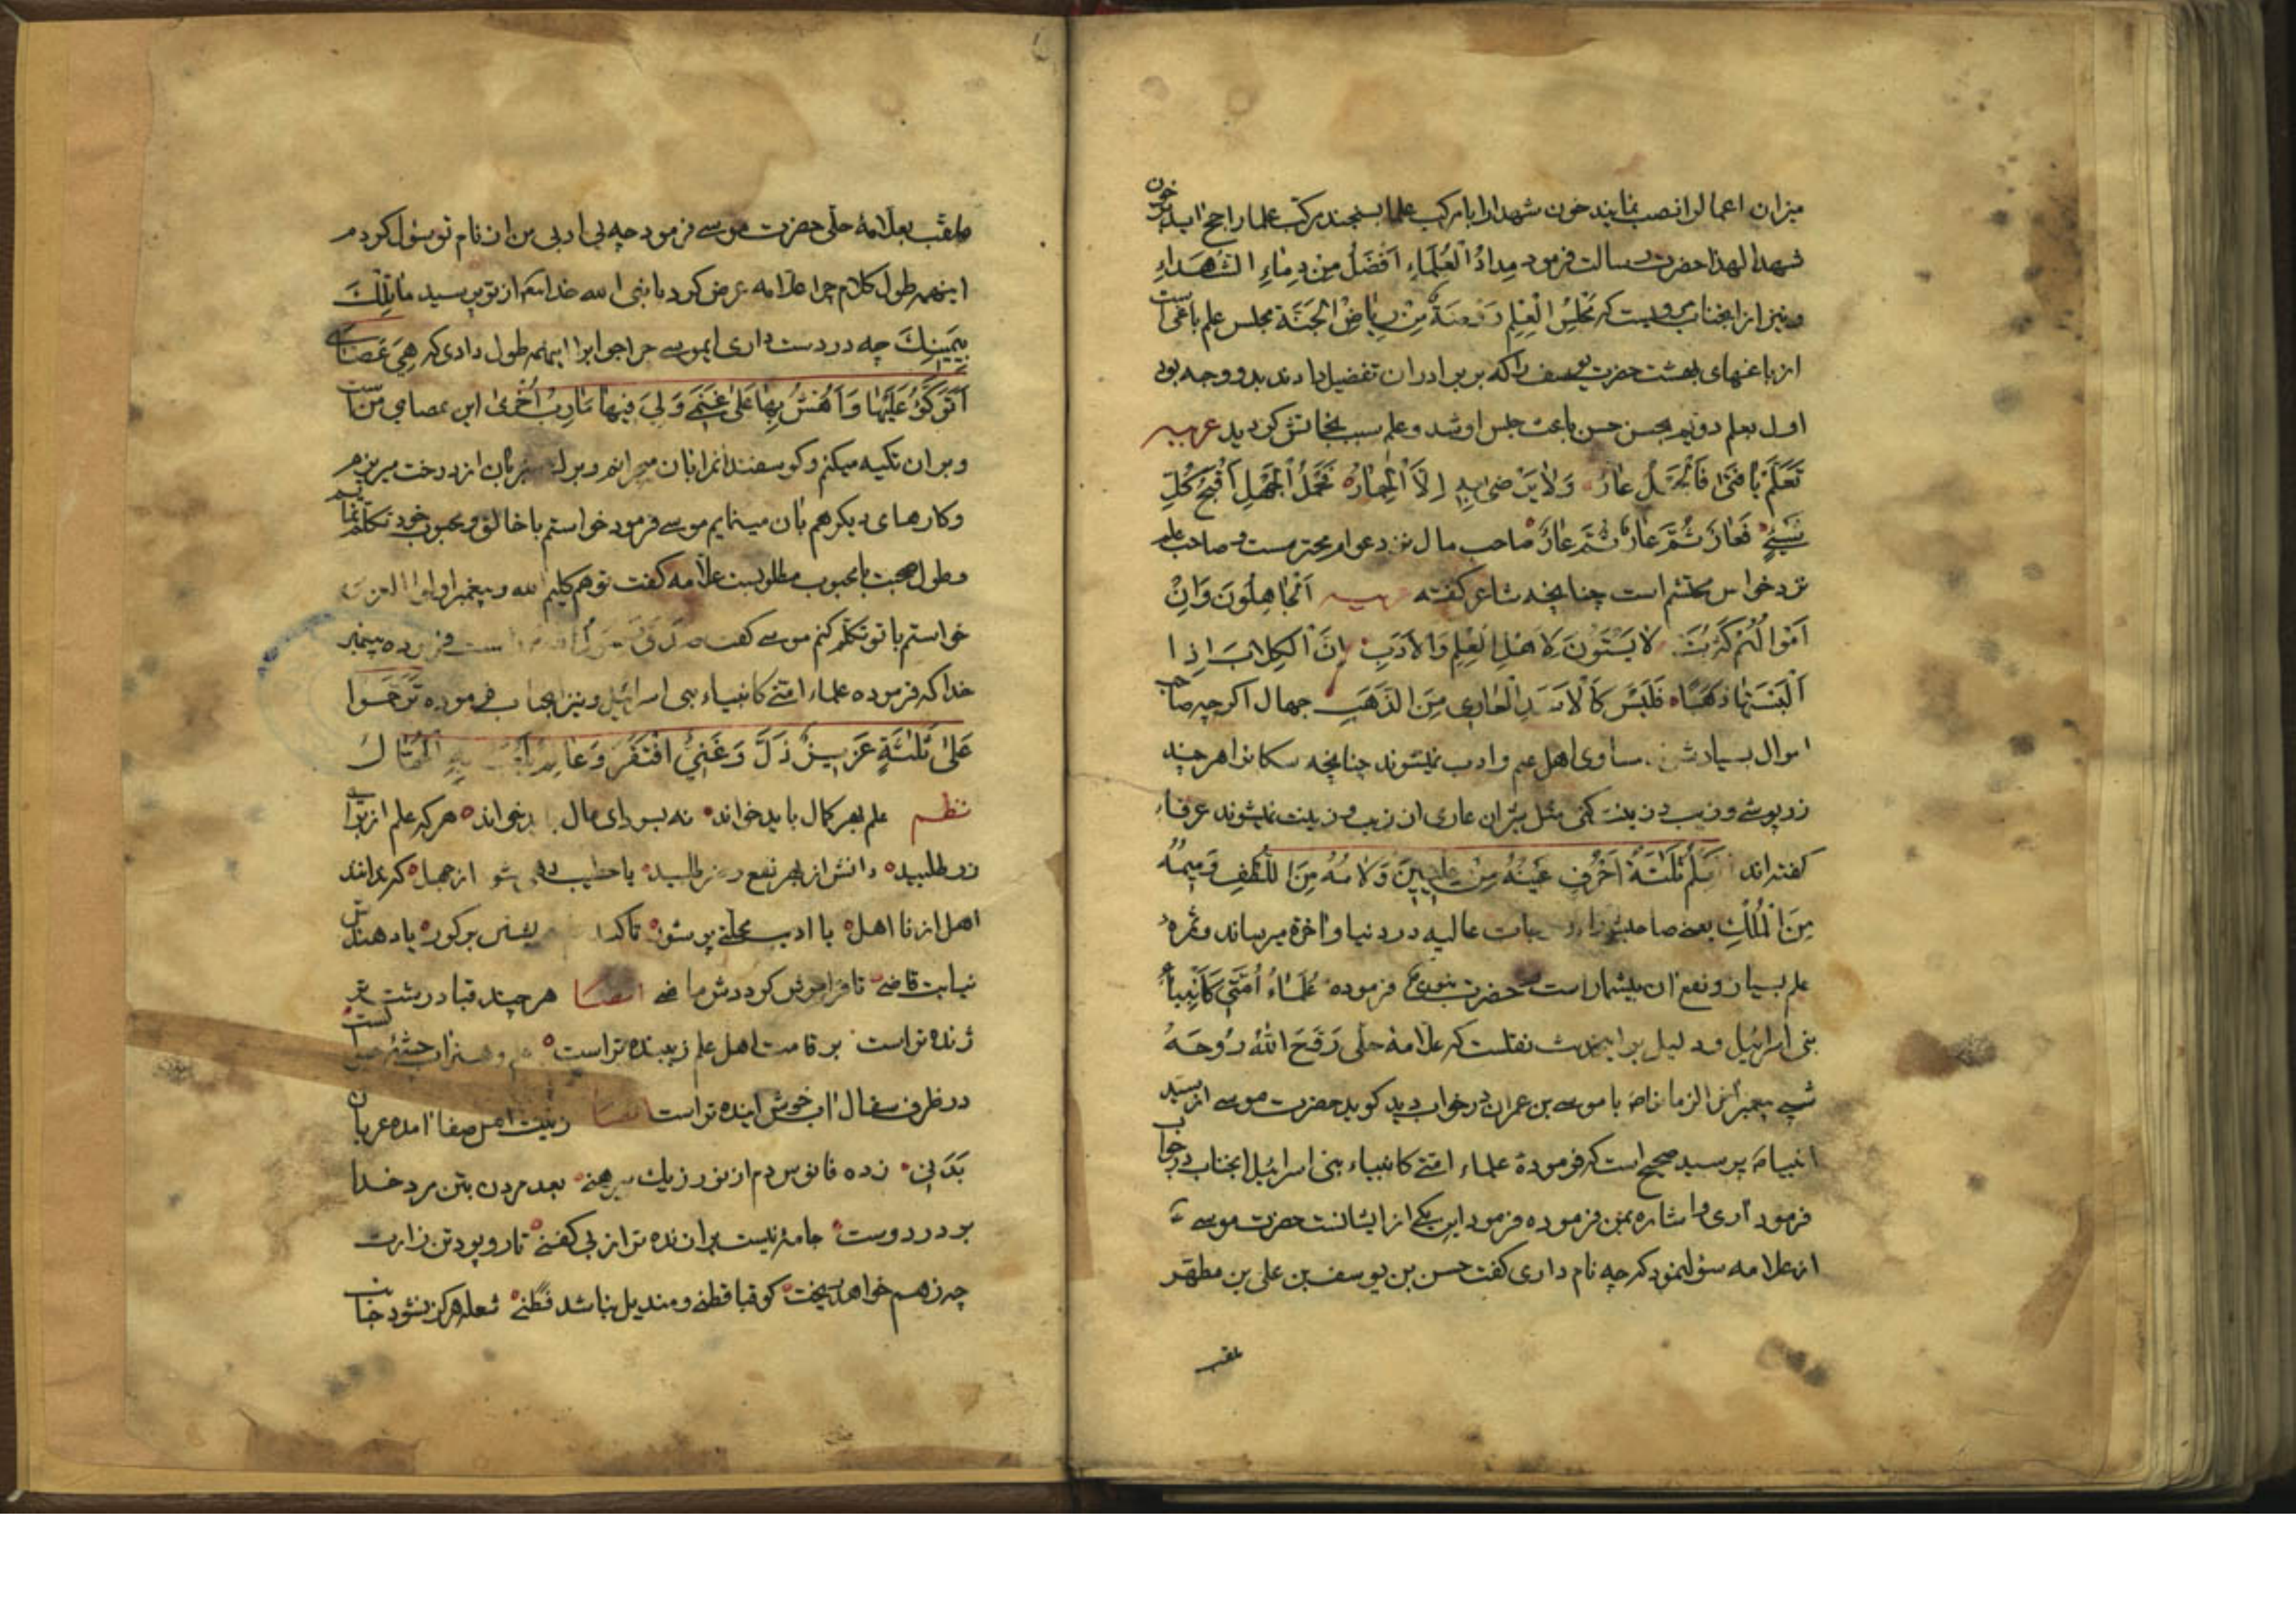 میزان اعمال را نصب نمایند خون شهدا را با مرکب علما بسنجند مرکب علما راجح اید بر خون
شهدا لهذا حضرت رسالت فرمود مِدادُ الْعُلَماءِ اَفْضَلُ مِنْ دِماءِ الشُّهَداءِ
و نیز از انجناب مرویست که مَجْلِسُ الْعِلْمِ رَوْضَةٌ مِنْ رِیاضِ الْجَنَّةِ مجلس علم باغی است
از باغهای بهشت حضرت یوسف را که بر برادران تفضیل دادند بدو وجه بود
اول بعلم دویم بحسن حسن باعث حبس او شد و علم سبب نجاتش کردید عربیه
تَعَلَّمْ یا فَتی فَالْجَهْلُ عارٌ وَلا یَرْضی بِهِ اِلاَّ الْحِمارُ اَقْبَحُ کُلِّ
شَیْئٍ فَعارٌ ثُمَّ عارٌ ثُمَّ عارٌ صاحب مال نزد عوام محترمست و صاحب علم
نزد خواص محتشم است چنانچه شاعر کفته عربیه اَلْجاهِلُونَ وَاِنْ
اَمْوالُهُمْ کَثُرَتْ لا یَسْتَوُونَ لِاَهْلِ الْعِلْمِ وَالْاَدَبِ اِنَّ الْکِلابَ اِذا
اَلْبَسْتَها ذَهَبًا فَلَیْسَ کَالْاَسَدِ الْعاری مِنَ الذَّهَبِ جهال اکرچه صاحب
اموال بسیار شوند مساوی اهل علم و ادب نمیشوند چنانچه سکانرا هر چند
زر پوشی و زیب و زینت کنی مثل شیران عاری از زیب و زینت نمیشوند عرفاء
کفته اند اَلْعِلْمُ ثَلاثَةُ اَحْرُفٍ عَیْنُهُ مِنْ عِلِّیّینَ وَلامُهُ مِنَ اللُّطْفِ وَمیمُهُ
مِنَ الْمُلْکِ یعنی صاحبش را بدرجات عالیه در دنیا و اخرة میرساند و ثمره
علم بسیار و نفع ان بیشمار است حضرت نبوی فرموده عُلَماءُ اُمَّتی کَاَنْبِیاءِ
بنی اسرائیل و دلیل بر اینحدیث نقلست که علامه حلی رَوَّحَ اللهُ رُوحَهُ
شبی پیغمبر اخر الزمان را با موسی بن عمران در خواب دید کوید حضرت موسی از سید
انبیاء پرسید صحیح است که فرمودۀ علماء امتی کانبیاء بنی اسرائیل انجناب در جواب
فرمود آری و اشاره بمن فرموده فرمود این یکی از ایشانست حضرت موسی
از علامه سؤال نمود که چه نام داری کفت حسن بن یوسف بن علی بن مطهر
ملقب
ملقب بعلامۀ حلی حضرت موسی فرمود چه بی ادبی من از نام تو سؤال کردم
اینهمه طول کلام چرا علامه عرض کرد یا نبی الله خدا هم از تو پرسید ما تِلْکَ
بِیَمینِکَ چه در دست داری ایموسی در جواب چرا اینهمه طول دادی که هِیَ عَصایَ
اَتَوَکَّؤُ عَلَیْها وَاَهُشُّ بِها عَلی غَنَمی وَلِیَ فیها مَارِبُ اُخْری این عصای من است
و بر ان تکیه میکنم و کوسفندانرا بان میرانم و برک بان از درخت میریزم
و کارهای دیکر هم بان مینمایم موسی فرمود خواستم با خالق و محبوب خود تکلم نمایم
و طول صحبت با محبوب مطلوبست علامه کفت تو هم کلیم الله و پیغمبر اولوا العزمی
خواستم با تو تکلم کنم موسی کفت راست فرموده پیغمبر
خدا که فرموده علماء امتی کانبیاء بنی اسرائیل و نیز انجناب فرموده تَرَحَّمُوا
عَلی ثَلاثَةٍ عَزیزٌ ذَلَّ وَغَنِیٌّ افْتَقَرَ وَعالِمٌ یَلْعَبُ بِهِ الْجُهّالُ
نظم علم بهر کمال باید خواند نه بسودای مال باید خواند هر که علم از برای
زر طلبید دانش از بهر نفع و ضر طلبید یا خطیب دهی شو از جهل که نداند
اهل از نا اهل یا ادیب محلتی پر شور تا کند یا دهندش
نیابت قاضی تا فراموش کرددش ماضی ایضا هر چند قبا در بشت تو
ژنده تر است بر قامت اهل علم زیبنده تر است علم و هنر اب چشمۀ حیوانست
در ظرف سفال اب خوش ایندە تر است ایضا زینت اهل صفا امده عریان
بَدَنی زده فانوس دم از نور ز یک پیرهنی بعد مردن بتن مرد خدا
بر در دوست جامۀ نیست برازنده تر از بی کفنی تار و پود تن زارت
چه ز هم خواهد ریخت کو قبا قطنی و مندیل نباشد قطنی شعله هرکز نشود